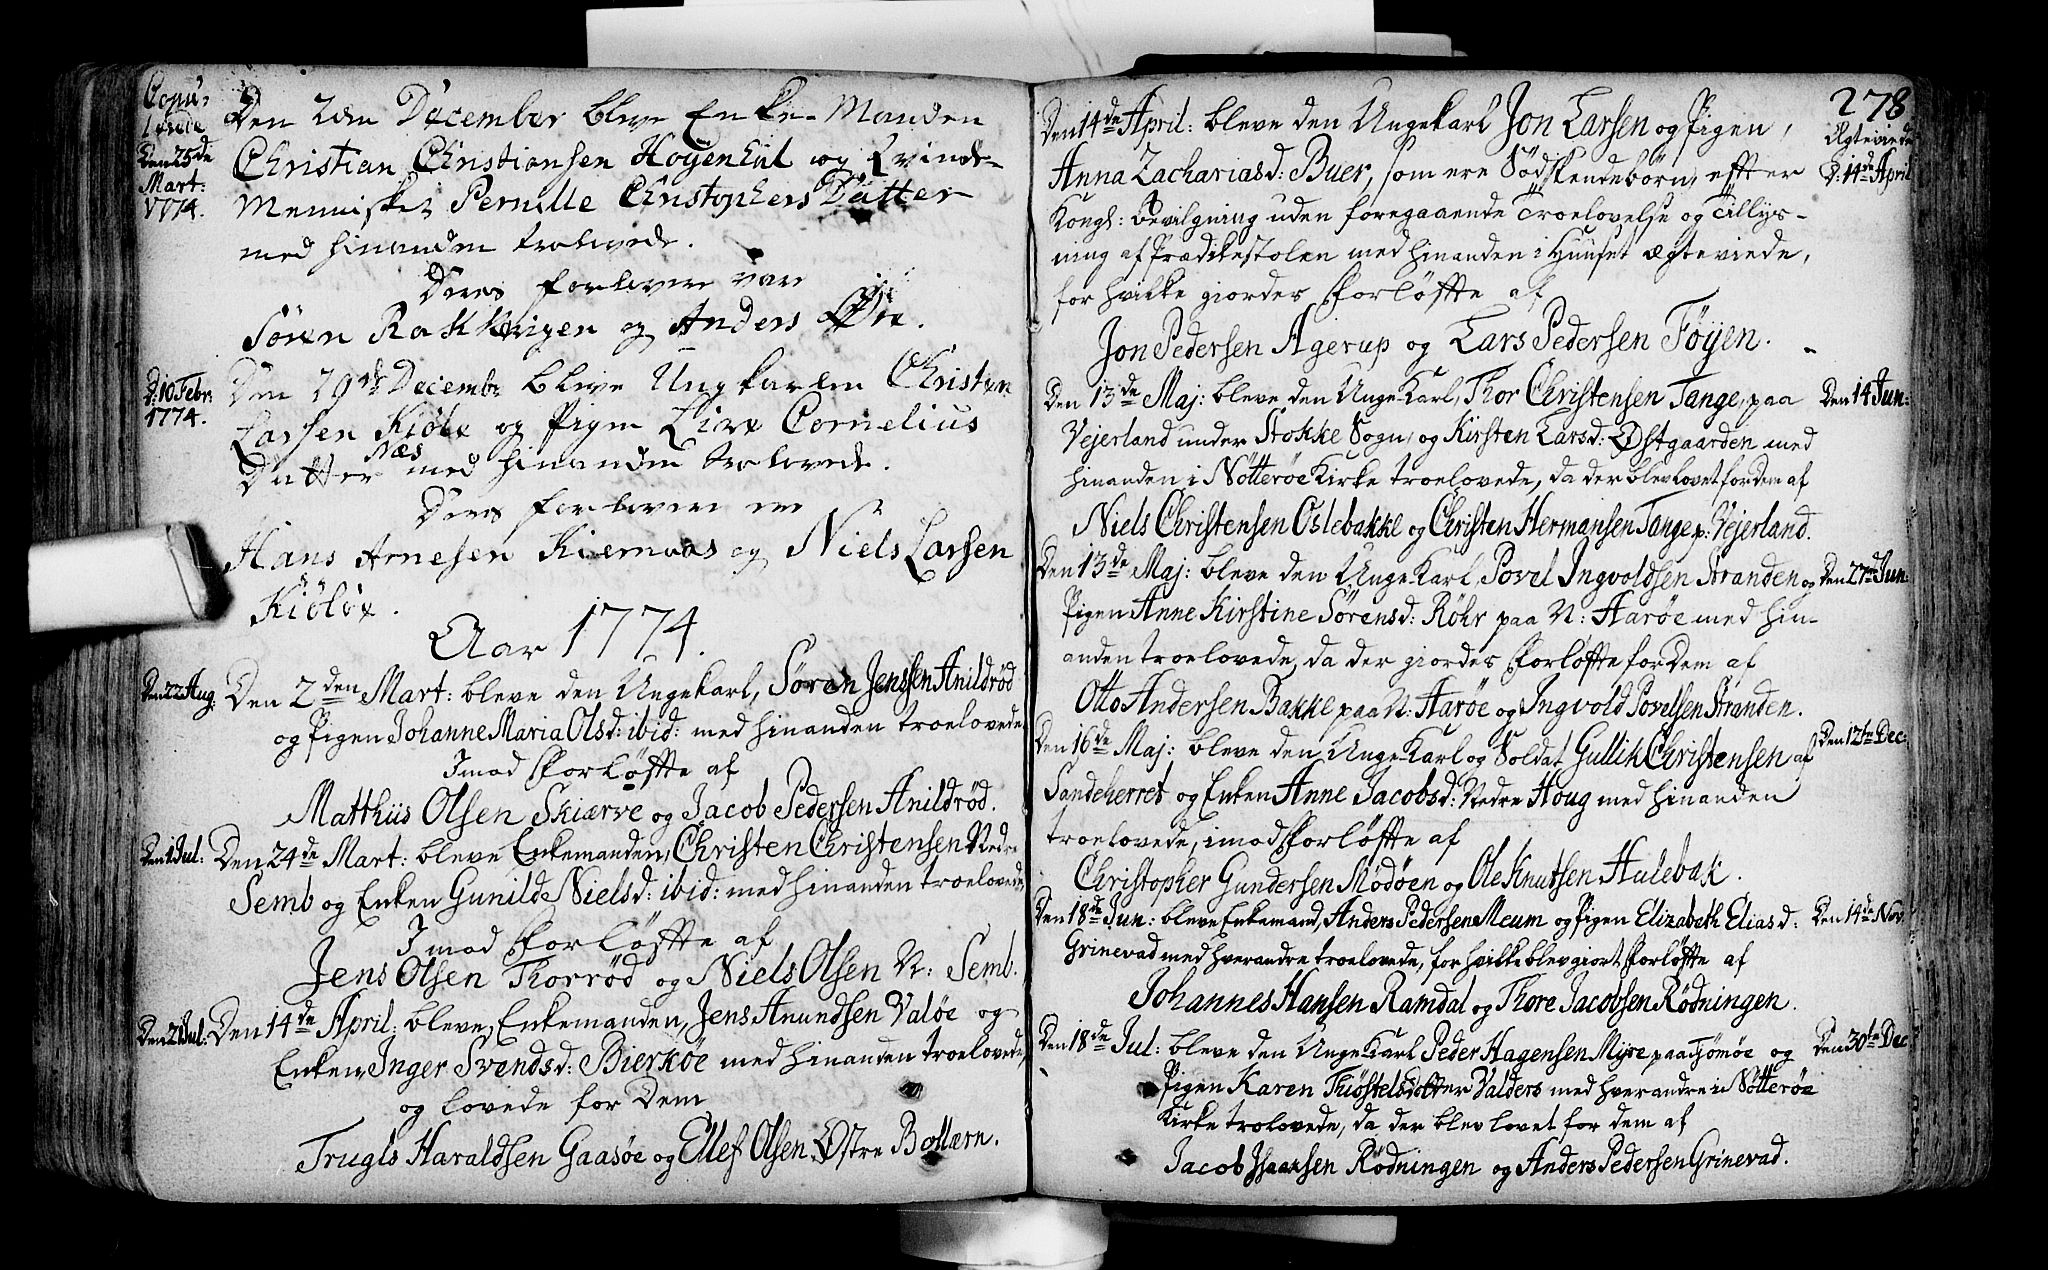 Copu-
lerede
Den 25de
Mart:
1774.
Den 2den December bleve Enke-Manden
Christian Christiansen Høyenhal og Qvinde-
Mennisket Pernille Christophers Datter
med hinanden trolovede.
Deres forlovere var
Sören Rakkevigen og Anders Øen.
D: 10 Febr:
1774.
Den 29de Decembr bleve Ungkarlen Christen
Larsen Kiöle og Pigen Live Cornelius
Datter Næs med hinanden trolovede.
Deres forlovere ere
Hans Arnesen Kiernaas og Niels Larsen
Kiöløe.
Aar 1774.
Den 22 Aug: Den 2den Mart: bleve den Ungekarl, Sören Jenssen Anildröd
og Pigen Johanne Maria Olsd: ibid: med hinanden troelovede
Imod Forløfte af
Matthiis Olsen Skiærve og Jacob Pedersen Anildröd.
Den 1 Jul: Den 24de Mart: bleve Enkemanden, Christen Christensen Nedre
Semb og Enken Gunild Nielsd: ibid: med hinanden troelovede
Imod Forløfte af
Jens Olsen Thorröd og Niels Olsen N: Semb.
Den 21 Jul: Den 14de April: bleve, Enkemanden, Jens Anundsen Valöe og
Enken, Inger Svendsd: Bierköe med hinanden troelovede,
og lovede for Dem
Trugls Haraldsen Gaasöe og Ellef Olsen Østre Bollærn.
278
Den 14de April: bleve den Ungekarl Jon Larsen og Pigen,
Ægteviede
D: 14de April
Anna Zachariasd: Buer, som ere Södskendebörn, efter
Kongl: Bevilgning uden foregaaende Troelovelse og Tillys-
ning af Prædikestolen med hinanden i Huuset ægteviede,
for hvilke giordes Forløfte af
Jon Pedersen Agerup og Lars Pedersen Föyen.
Den 13de Maj: bleve den Unge Karl, Thor Christensen Tange, paa Den 14 Jun:
Vejerland under Stokke Sogn, og Kirsten Larsd: Østgaarden med
hinanden i Nötteröe Kirke troelovede, da der blev lovet for dem af
Niels Christensen Oslebakke og Christen Hermansen Tange p: Vejerland.
Den 13de Maj: bleve den Unge Karl, Povel Ingvoldsen Stranden og Den 27de Jun:
Pigen Anne Kirstine Sörensd: Röhr paa N: Aaröe med hin-
anden troelovede, da der giordes Forløfte for Dem af
Otto Andersen Bakke paa N: Aaröe og Ingvold Povelsen Stranden.
Den 16de Maj: bleve den Unge Karl og Soldat Gullik Christensen af Den 12te Dec:
Sandeherret og Enken Anne Jacobsd: Nedre Houg med hinanden
troelovede, imod Forløfte af
Christopher Gundersen Mödöen og Ole Knutsen Hulebak.
Den 18de Jun: bleve Enkemand, Anders Pedersen Meum og Pigen Elizabeth Eliasd: Den 14de Nov:
Grinevad med hverandre troelovede, for hvilke blev giort Forløfte af
Johannes Hansen Ramdal og Thore Jacobsen Rödningen.
Den 18de Jul: bleve den Unge Karl Peder Hagensen Myre paa Tjömöe og Den 30te Dec
Pigen Karen Thióstelsdotter Valders med hverandre i Nötteröe
Kirke trolovede, da der blev lovet for dem af
Jacob Isaaksen Rödningen og Anders Pedersen Grinevad.